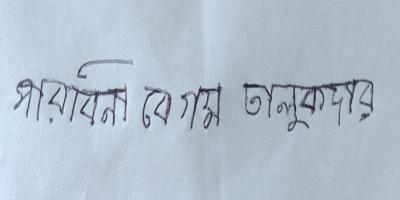 পারাবিনা বেগম তালুকদার